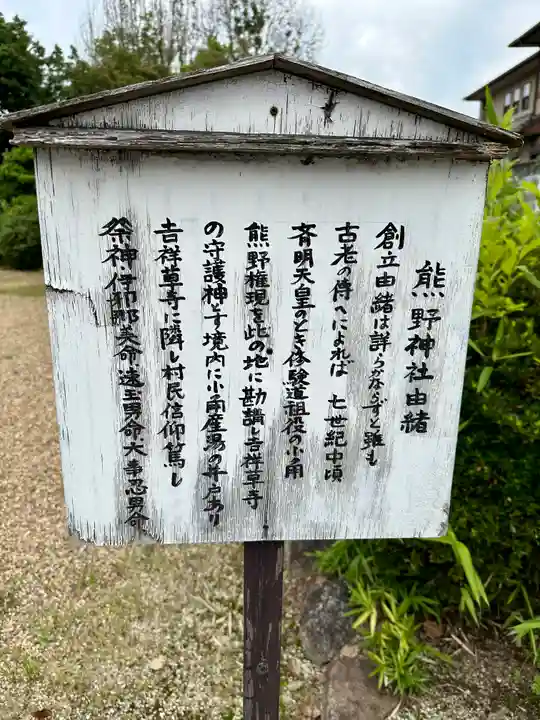 熊野神社由緒
創立由緒は詳らかならずと雖も
古老の傳へによれば 七世紀中頃
斉明天皇のとき修験道祖役の小角
熊野権現を此の地に勘請し吉祥草寺
の守護神とす境内に小角産湯の井戸あり
吉祥草寺に隣し村民信仰篤し
祭神伊邪那美命速玉男命大事忍男命